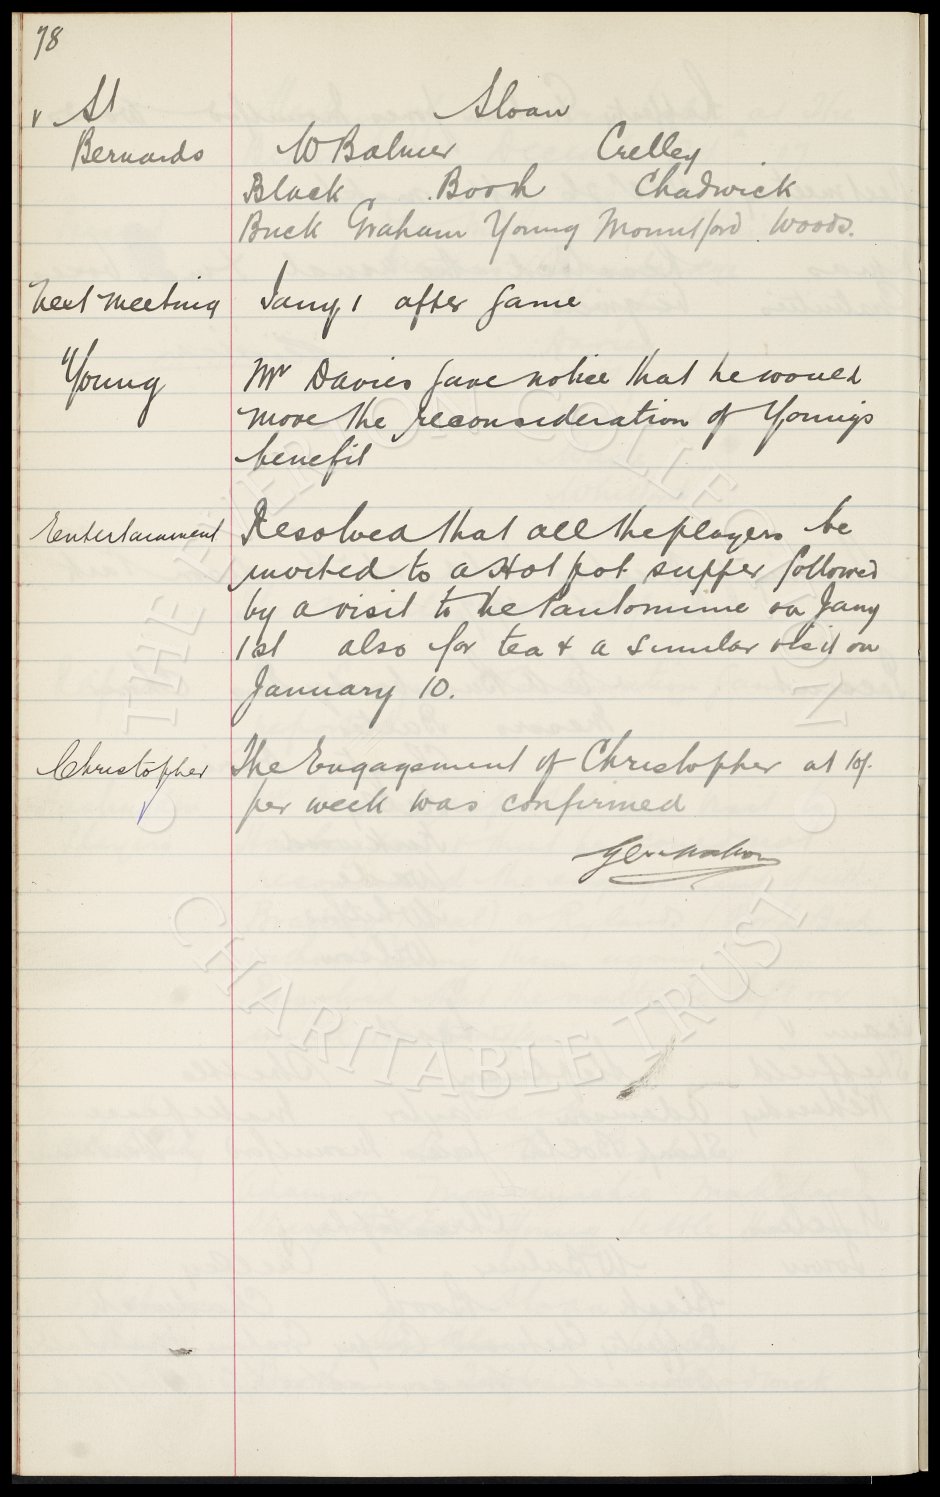 78
v St Sloan
Bernards W Balmer Crelley
Black Booth Chadwick
Buck Graham Young Mountford Woods.
Next Meeting Jany 1 after game
Young Mr Davies gave notice that he would
move the reconsideration of Young's
benefit
Entertainment Resolved that all the players be
invited to a Hot pot supper followed
by a visit to the Pantomime on Jany
1st also for tea & a similar visit on
January 10.
Christopher The Engagement of Christopher at 10/-
per week was confirmed
THE EVERTON COLLECTION
CHARITABLE TRUST